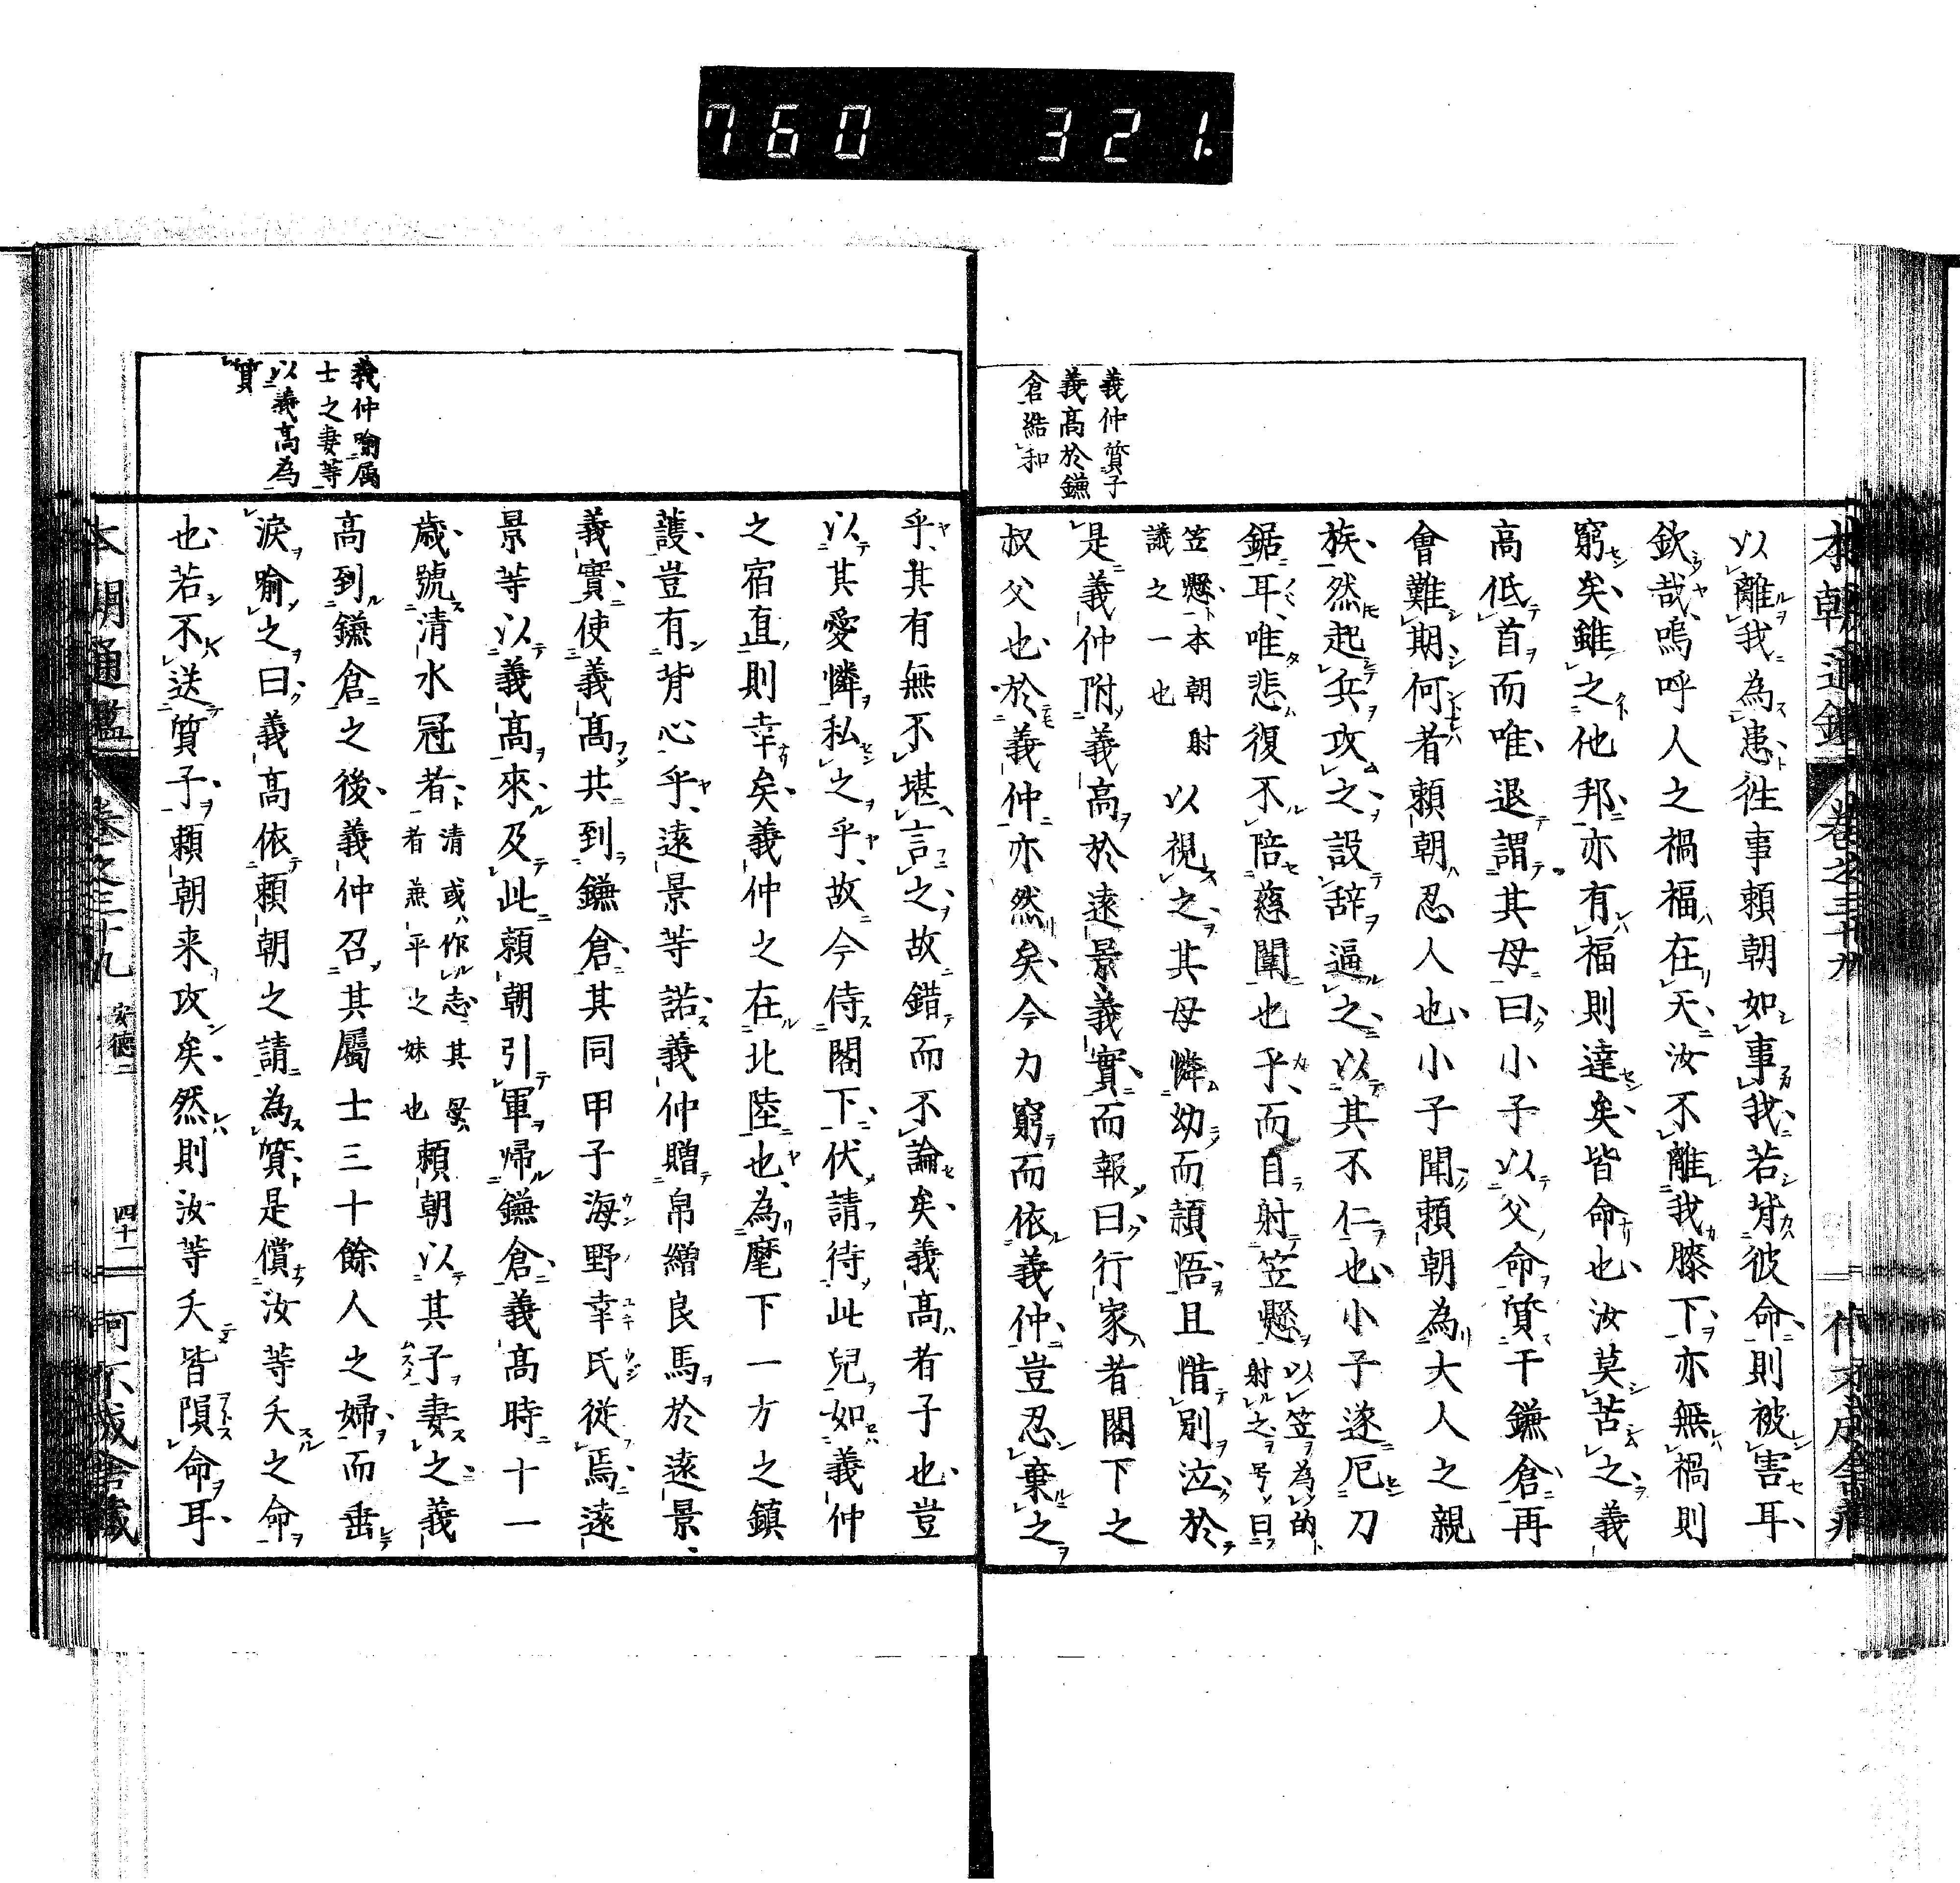 760 321.
本朝通鑑 卷之三十九
義仲質子
義高於鎌
倉結和
以離我為患往事頼朝如事我若背彼命則被害耳
欽哉嗚呼人之禍福在天汝不離我膝下亦無禍則
窮矣雖之他邦亦有福則達矣皆命也汝莫苦之義
高低首而唯退謂其母曰小子以父命質于鎌倉再
會難期何者頼朝忍人也小子聞頼朝為大人之親
族然起兵攻之設辞逼之以其不仁也小子遂厄刀
鋸耳唯悲復不陪慈闈也乎而自射笠懸以笠為的
射之号曰
笠懸本朝射
議之一也以視之其母憐幼而頴悟且惜別泣於
是義仲附義高於遠景義實而報曰行家者閣下之
叔父也於義仲亦然矣今力窮而依義仲豈忍棄之
乎其有無不堪言之故錯而不論矣義高者子也豈
以其愛憐私之乎故今侍閣下伏請待此兒如義仲
之宿直則幸矣義仲之在北陸也為麾下一方之鎮
護豈有背心乎遠景等諾義仲贈帛繒良馬於遠景
義實使義高共到鎌倉其同甲子海野幸氏從焉遠
景等以義高來及此頼朝引軍帰鎌倉義高時十一
歳號清水冠者清或作志其母
者兼平之妹也頼朝以其子妻之義
高到鎌倉之後義仲召其屬士三十餘人之婦而垂
淚喻之曰義高依頼朝之請為質是償汝等夫之命
也若不送質子頼朝来攻矣然則汝等夫皆隕命耳
義仲喻屬
士之妻等
以義高為
質
本朝通鑑 卷之三十九 安德二 四十二